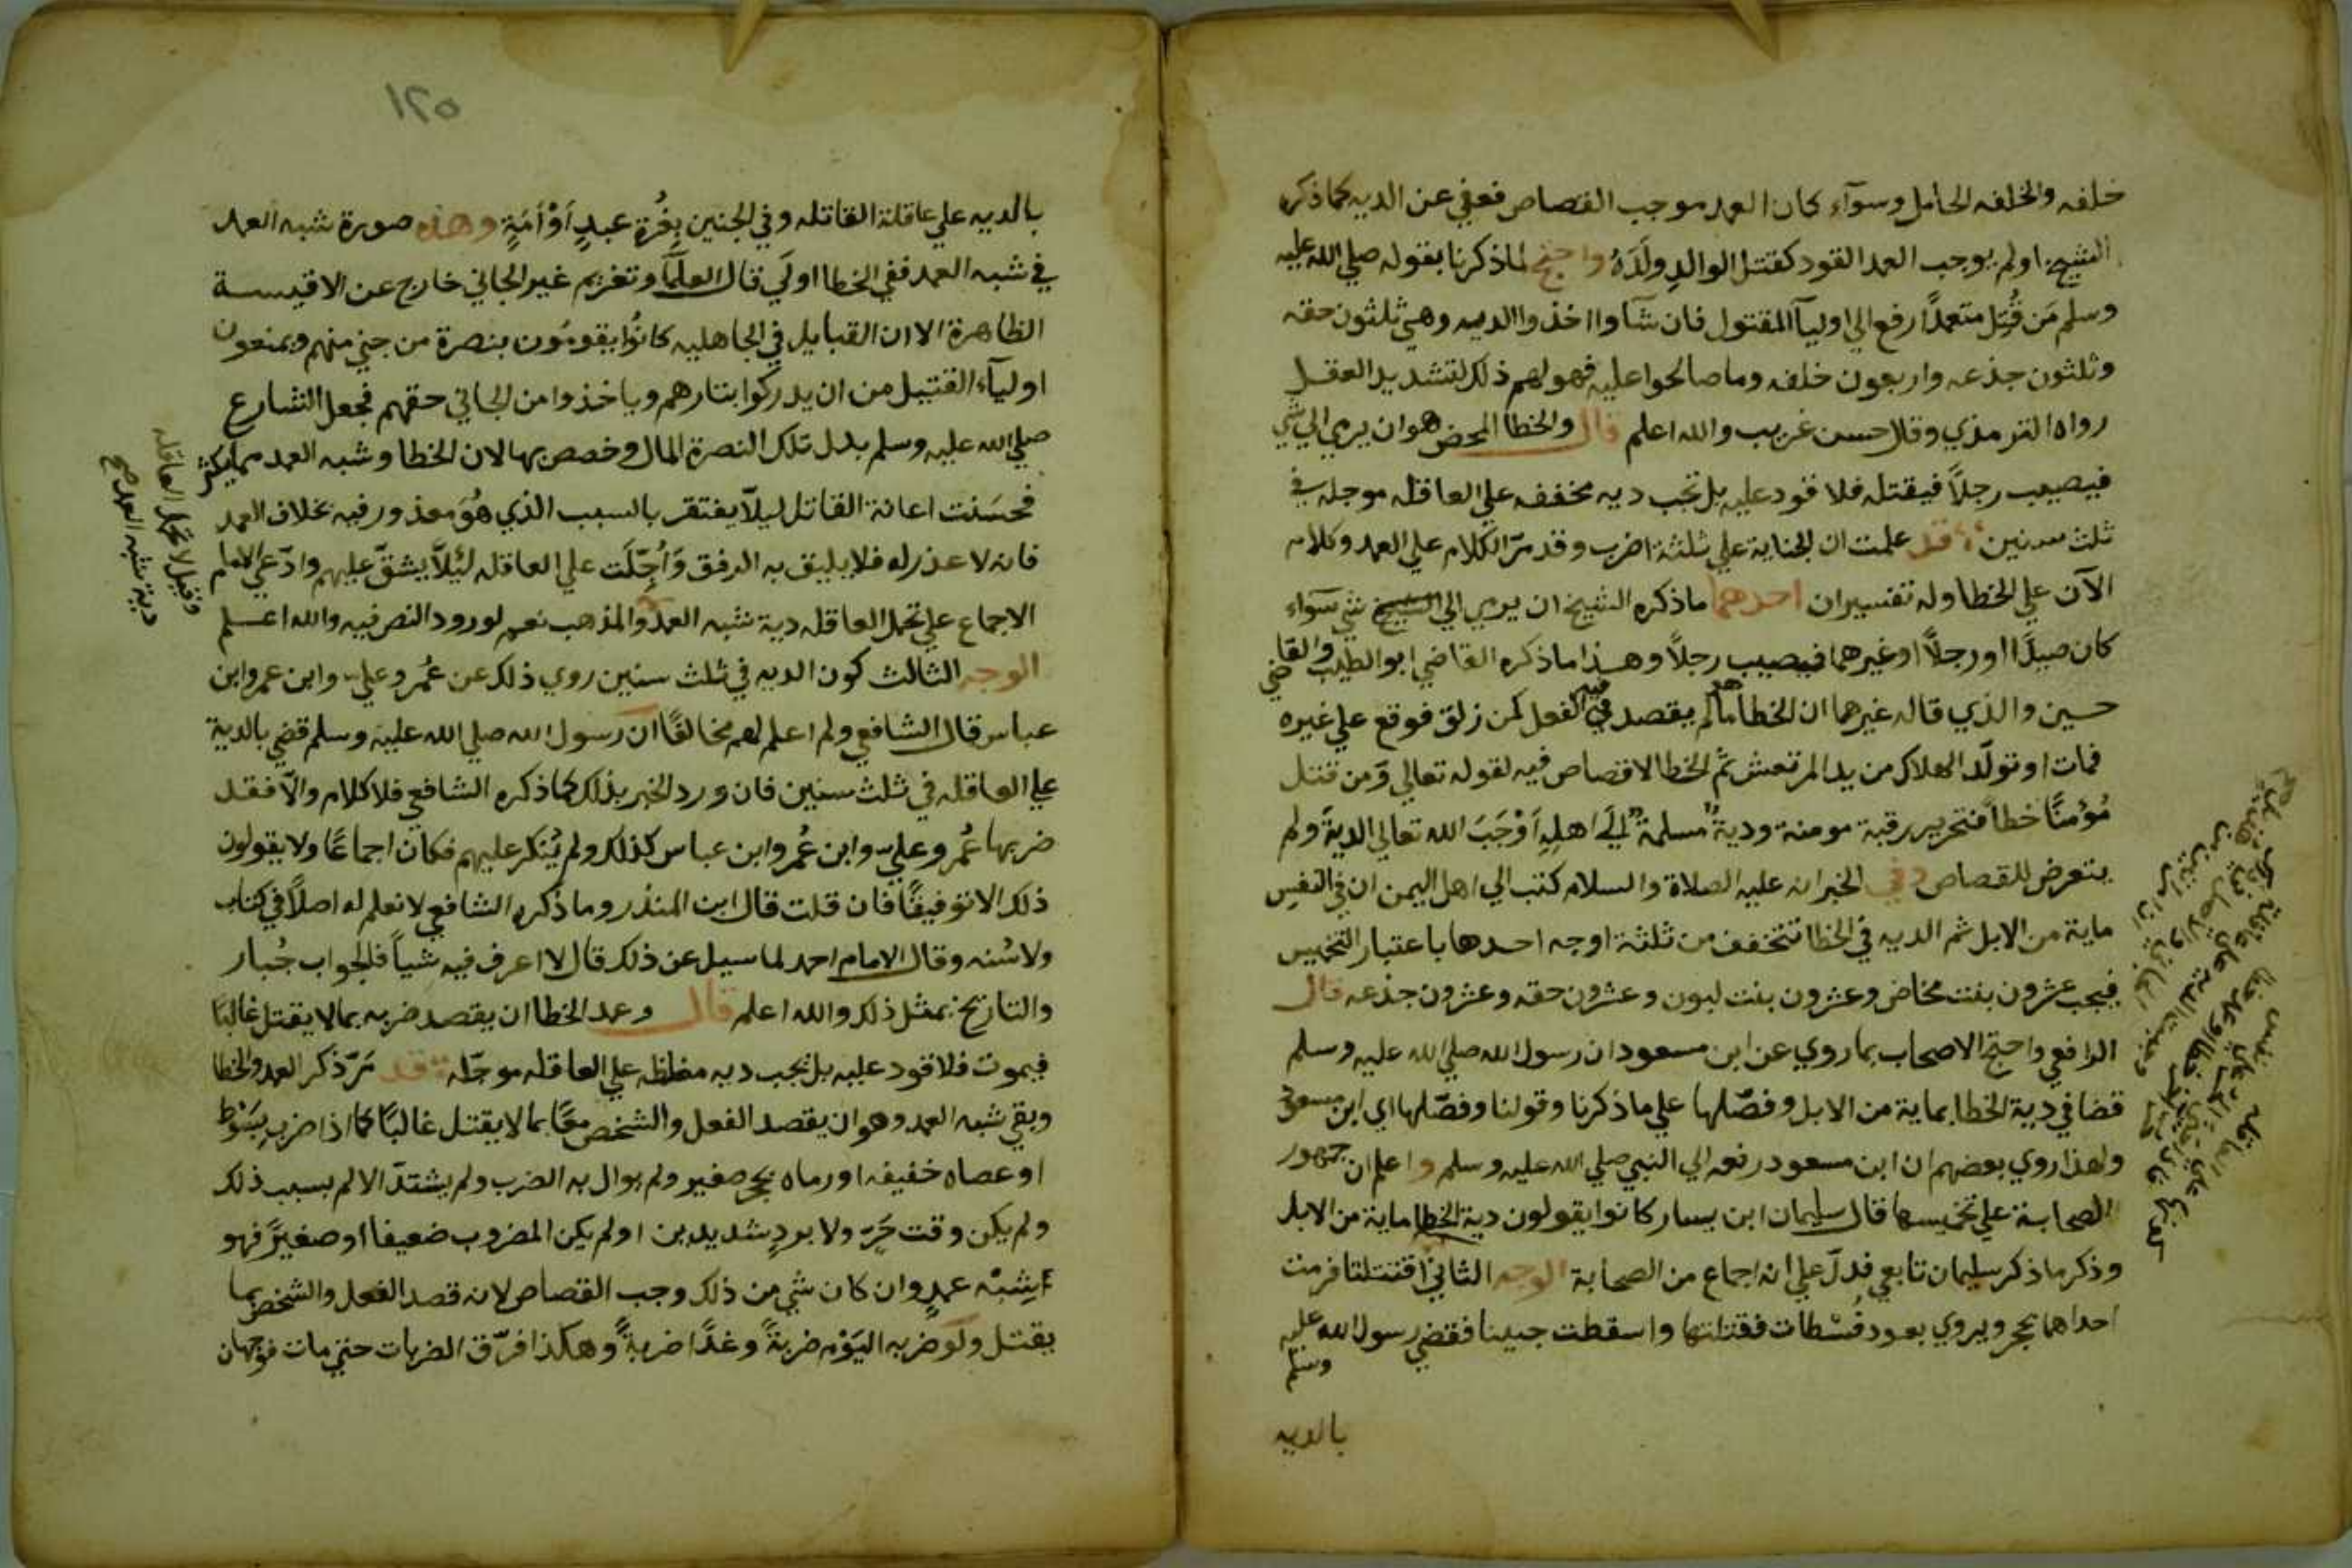 خلفه والخلفه الحامل وسوآء كان العمد موجب القصاص فعفي عن الديه كما ذكره
الشيخ او لم يوجب العمد القود كقتل الوالد ولَدَهُ واحتج لما ذكرنا بقوله صلي الله عليه
وسلم مَن قُتِل متعمدًا رفع الي اوليآ المقتول فان شآوا اخذوا الديه وهي ثلثون حقه
وثلثون جذعه واربعون خلفه وما صالحوا عليه فهو لهم ذلك لتشديد العقل
رواه الترمذي وقال حسن غريب والله اعلم قال والخطا المحض هوان يرمي الي شي
فيصيب رجلاً فيقتله فلا قود عليه بل تجب ديه مخففه علي العاقله موجله في
ثلث سنين قد علمت ان الجناية علي ثلثة اضرب وقد مرّ الكلام علي العمد وكلام
الآن علي الخطا وله تفسيران احدهما ماذكره الشيخ ان يرمي الي الشيخ شي سوآء
كان صيدًا او رجلاً او غيرهما فيصيب رجلاً وهذا ماذكره القاضي ابو الطيب والقاضي
حسين والذي قاله غيرهما ان الخطا ما لم يقصد فيه الفعل كمن زلق فوقع علي غيره
فمات او تولّد الهلاك من يد المرتعش ثم الخطا لا قصاص فيه لقوله تعالي وَمن قتل
مُؤمنًا خطأ فتحرير رقبة مومنة ودية مسلمة الَي اهلهِ اَوْجَبَ الله تعالي الدية ولم
يتعرض للقصاص وفي الخبر انه عليه الصلاة والسلام كتب الي اهل اليمن ان في النفسِ
ماية من الابل ثم الديه في الخطا تتخفف من ثلثة اوجه احدها باعتبار التخميس
فيجب عشرون بنت مخاض وعشرون بنت لبون وعشرون حقه وعشرون جذعه قال
الرافعي واحتج الاصحاب بما روي عن ابن مسعود ان رسول الله صلي الله عليه وسلم
قضا في دية الخطا بماية من الابل وفصّلها علي ما ذكرنا وقولنا وفصّلها اي ابن مسعود
ولهذا روي بعضهم ان ابن مسعود رفعه الي النبي صلي الله عليه وسلم واعلم ان جمهور
الصحابة علي تخميسها قال سليمان ابن يسار كانوا يقولون دية الخطا ماية من الابل
وذكر ما ذكر سليمان تابعي فدلّ علي انه اجماع من الصحابة الوجه الثاني اقتتلتا فرمت
احداهما بحجر ويروي بعود فُسْطاط فقتلتها واسقطت جنينا فقضي رسول الله عليه
وسلم
بالديه
١٢٥
بالديه علي عاقلة القاتله وفي الجنين بِغُرةِ عبدٍ اَوْ اَمَةٍ وهذه صورة شبه العمد
في شبه العمد ففي الخطا اولَي قال العلمآ وتغريم غير الجاني خارج عن الاقيسة
الظاهرة الا ان القبايل في الجاهليه كانُوا يقومُون بنصرة من جني منهم ويمنعون
اوليآء القتيل من ان يدركوا بثارهم وياخذوا من الجاني حقهم فجعل الشارع
صلي الله عليه وسلم بدل تلك النصرة المال وخصص بها لان الخطا وشبه العمد مما يكثر
فحسَنت اعانة القاتل ليلاّ يفتقر بالسبب الذي هُوَ معذور فيه بخلاف العمد
فانه لا عذر له فلا يليق به الرفق وَاُجِّلَت علي العاقله لئلاّ يشقّ عليهم وادّعي الامام
الاجماع علي تحمل العاقله دية شبه العمد والمذهب نعم لورود النص فيه والله اعلم
الوجه الثالث كون الديه في ثلث سنين روي ذلك عن عُمر وعلي وابن عمر وابن
عباس قال الشافعي ولم اعلم لهم مخالفًا ان رسول الله صلي الله عليه وسلم قضي بالدية
علي العاقله في ثلث سنين فان ورد الخبر بذلك كما ذكره الشافعي فلا كلام والاّ فقد
ضربها عُمر وعلي وابن عُمر وابن عباس كذلك ولم يُنكر عليهم فكان اجماعًا ولا يقولون
ذلك الا توفيقًا فان قلت قال ابن المنذر وما ذكره الشافعي لا نعلم له اصلاً في كتاب
ولا سُنه وقال الامام احمد لما سيل عن ذلك قال لا اعرف فيه شياً فالجواب جُبار
والتاريخ بمثل ذلك والله اعلم قال وعمد الخطا ان يقصد ضربه بما لا يقتل غالبًا
فيموت فلا قود عليه بل تجب ديه مغلظه علي العاقله موجّله قد مَرّ ذكر العمد والخطا
وبقي شبه العمد وهو ان يقصد الفعل والشخص معًا بما لا يقتل غالبًا كما اذا ضرب بسَوْط
او عصاه خفيفه او رماه بحجر صغير ولم يوال به الضرب ولم يشتدّ الالم بسبب ذلك
ولم يكن وقت حَرّ ولا بردٍ شديدين او لم يكن المضروب ضعيفا او صغيرً فهو
شِبْه عمدٍ وان كان شي من ذلك وجب القصاص لانه قصد الفعل والشخص بما
يقتل ولَو ضربه اليَوْم ضربةً وغدًا ضربةً وهكذا فرّق الضربات حتي مات فوجهان
وقيل لا تحمل العاقله
دية شبه العمد صح